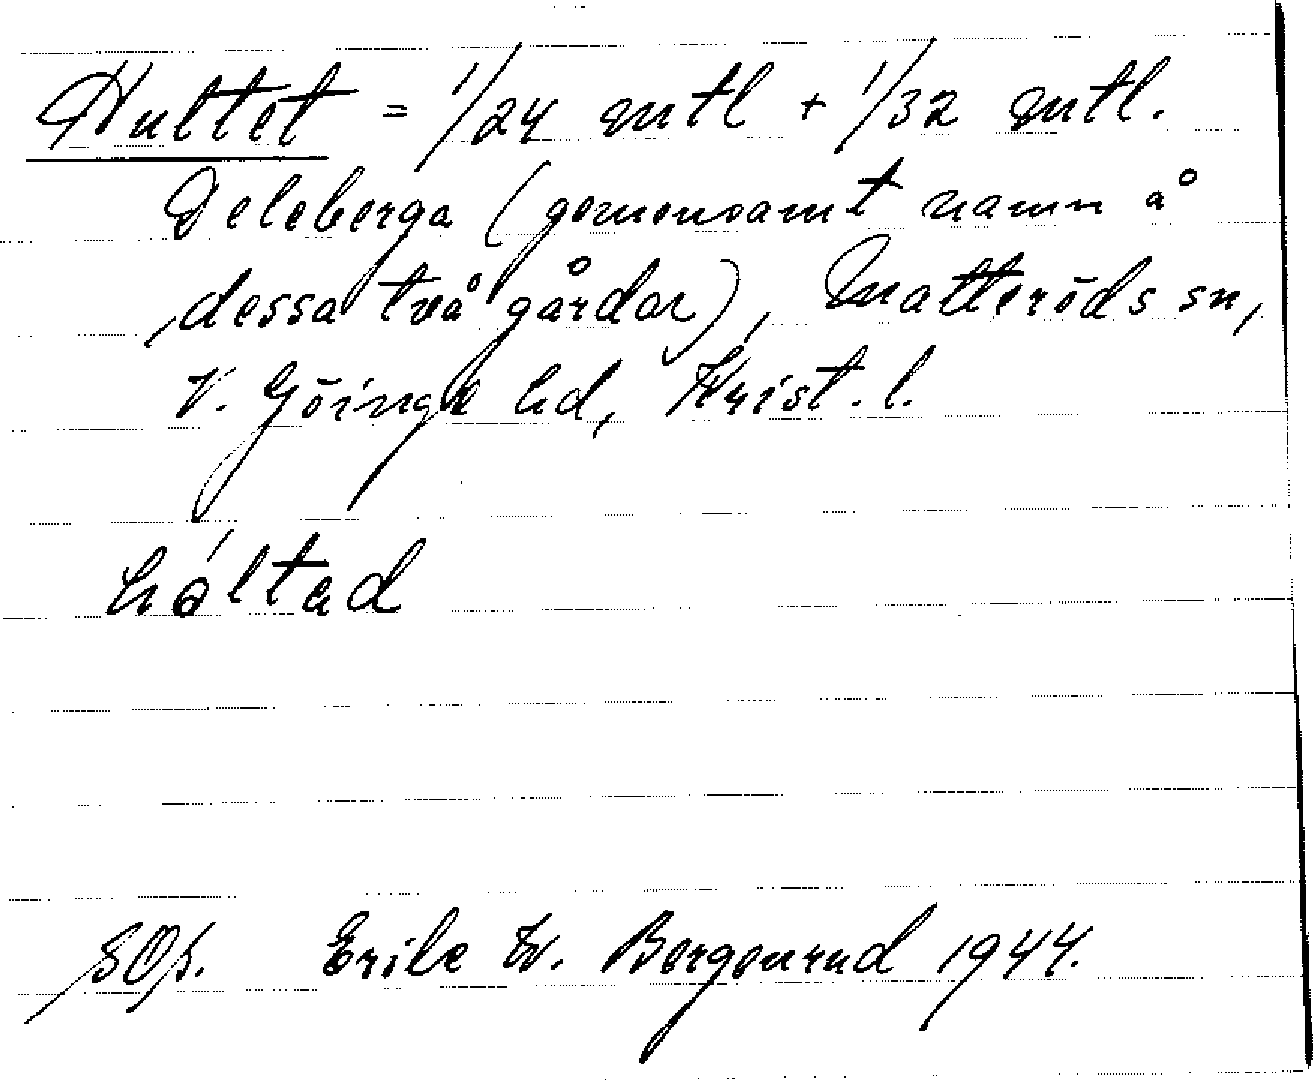 Hultet = 1/24 mtl + 1/32 mtl.
Deleberga (gemensamt namn å
dessa två gårdar), Matteröds sn,
V. Göinge hd, Krist. l.
hóltad
SOS. Erik W. Bergenrud 1944.